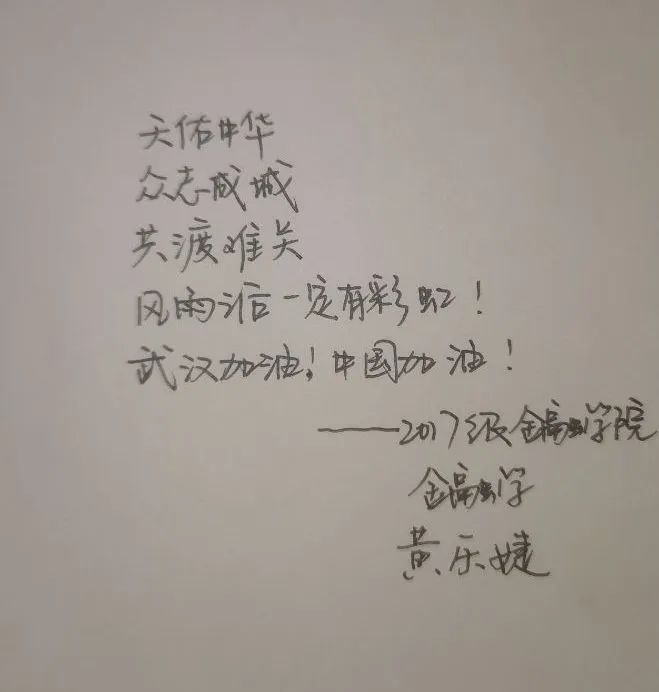 天佑中华
众志成城
共渡难关
风雨后一定有彩虹！
武汉加油！中国加油！
——2017级金融学院
金融学
黄乐婕